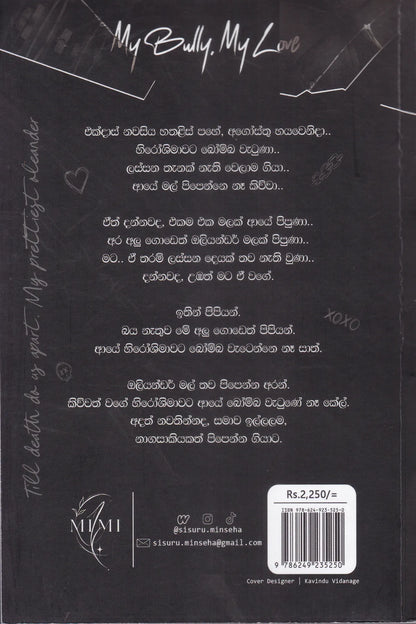 My Bully, My Love
එක්දාස් නවසිය හතළිස් පහේ, අගෝස්තු හයවෙනිදා..
හිරෝශිමාවට බෝම්බ වැටුණා..
ලස්සන තැනක් නැති වෙලාම ගියා..
ආයේ මල් පිපෙන්නෙ නෑ කිව්වා..
ඒත් දන්නවද, එකම එක මලක් ආයේ පිපුණා..
අර අලු ගොඩෙත් ඔලියන්ඩර් මලක් පිපුණා..
මට.. ඒ තරම් ලස්සන දෙයක් තව නැති වුණා..
දන්නවද, උඹත් මට ඒ වගේ.
ඉතින් පිපියන්.
බය නැතුව මේ අලු ගොඩෙත් පිපියන්.
ආයේ හිරෝශිමාවට බෝම්බ වැටෙන්නෙ නෑ සාත්.
ඔලියන්ඩර් මල් තව පිපෙන්න අරන්.
කිව්වත් වගේ හිරෝශිමාවට ආයේ බෝම්බ වැටුණේ නෑ කේල්.
අදත් නවතින්නද, සමාව ඉල්ලලම
නාගසාකියකත් පිපෙන්න ගියාට.
Till death do us part. My prettiest oleander
XOXO
MIMI
@sisuru.minseha
sisuru.minseha@gmail.com
Rs.2,250/=
ISBN 978-624-923-525-0
9 786249 235250
Cover Designer | Kavindu Vidanage